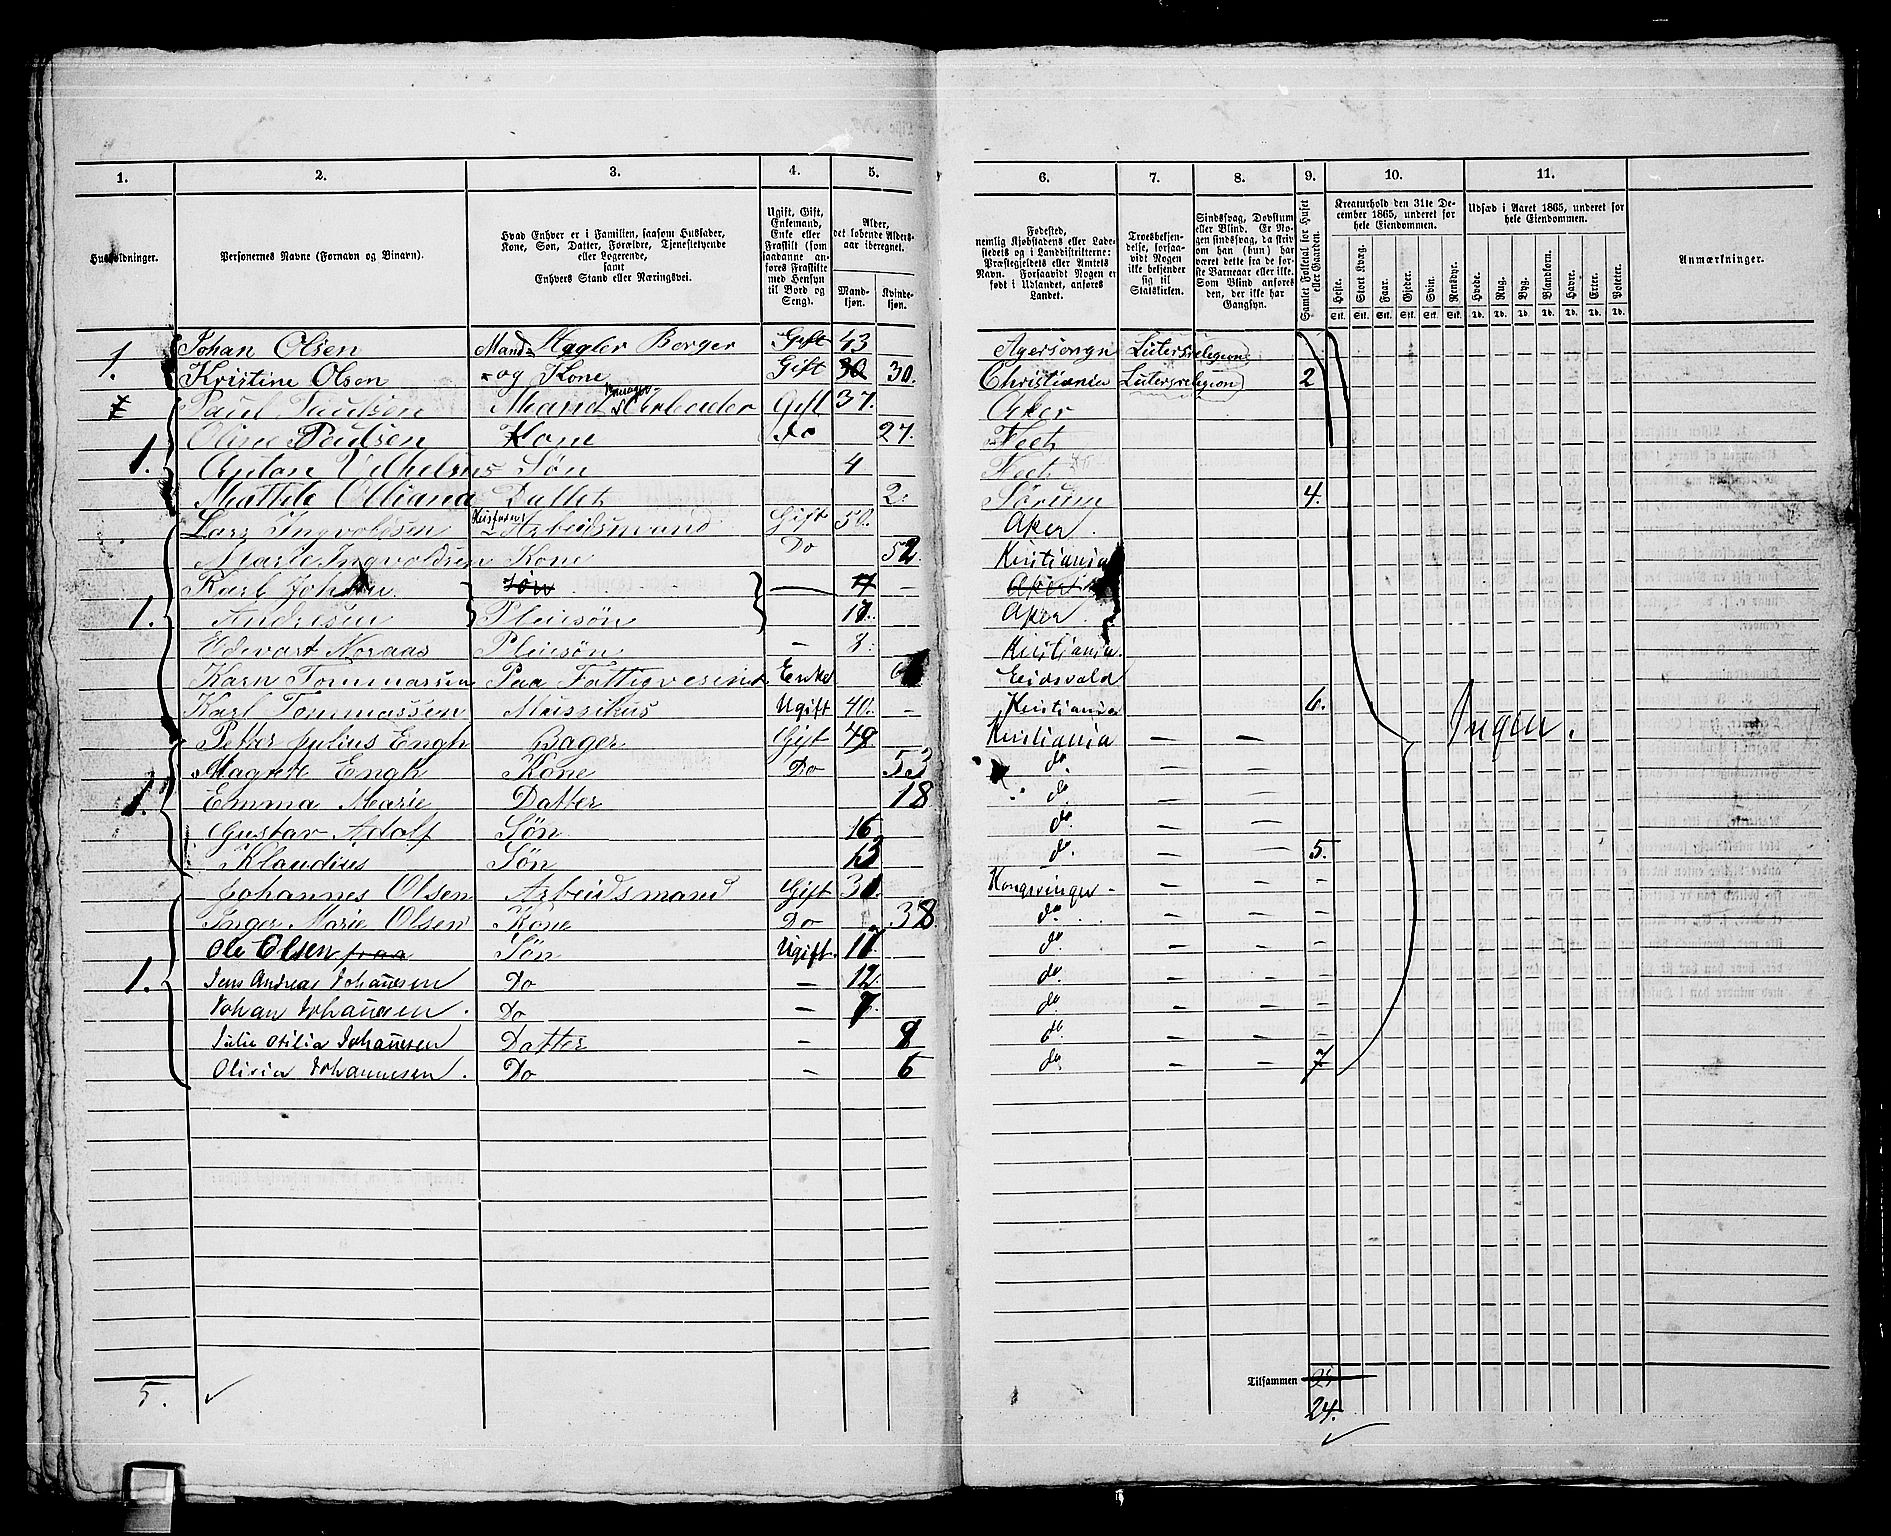 1. 2. 3. 4. 5. 6. 7. 8. 9. 10. 11.
Husholdninger.
Personernes Navne (Fornavn og Binavn).
Hvad Enhver er i Familien, saasom Husfader, Kone, Søn, Datter, Forældre, Tjenestetyende eller Logerende, samt Enhvers Stand eller Næringsvei.
Ugift, Gift, Enkemand, Enke eller Fraskilt (som saadanne anføres Fraskilte med Hensyn til Bord og Seng).
Alder, det løbende Aldersaar iberegnet.
Mandkjøn. Kvindekjøn.
Fødested, nemlig Kjøbstadens eller Ladestedets og i Landdistrikterne: Præstegjeldets eller Amtets Navn. Forsaavidt Nogen er født i Udlandet, anføres Landet.
Troesbekjendelse, forsaavidt Nogen ikke bekjender sig til Statskirken.
Sindssvag, Døvstum eller Blind. Er Nogen sindssvag, da skrives om han (hun) har været dette fra de første Barneaar eller ikke. Som Blind anføres den, der ikke har Gangsyn.
Samlet Folketal for Huset eller Gaarden.
Kreaturhold den 31te December 1865, underet for hele Eiendommen.
Heste. Stort Kvæg. Faar. Gjeder. Svin. Rensdyr.
Stk. Stk. Stk. Stk. Stk. Stk.
Udsæd i Aaret 1865, underet for hele Eiendommen.
Hvede. Rug. Byg. Blandkorn. Havre. Erter. Poteter.
Td. Td. Td. Td. Td. Td. Td.
Anmærkninger.
1. Johan Olsen Mand Berger Gift 43 Lutersreligion
Kristine Olsen og Kone Gift 30 30. Christiania Lutersreligion 2
Paul Paulsen Mand Arbeider Gift 37. Aker
1. Oline Paulsen Kone Do 27.
Anton Søn 4
Datter 2. Sørum 4.
Lars Ingvoldsen Husfader Arbeidsmand Gift 50. Aker.
Marie Ingvoldsen Kone Do 52 Kristiania
Karl Johan Søn —
1. Andresen Pleiesøn Aker
Edevart Noraas Pleiesøn — Kristiania.
Karn Tommassen Paa Enke Eidsvold
Karl Tommassen Mussikus Ugift 40. — Kristiania 6.
Petter Julius Engh Bager Gift 49 Kristiania — —
Magrete Engh Kone Do 53 do — —
1. Emma Marie Datter 18 do — —
Gustav Adolf Søn 16 do — —
Klaudius Søn do. — — 5.
Johannes Olsen Arbeidsmand Gift Kongsvinger — —
Inger Marie Olsen Kone Do 38 do — —
Ole Olsen Søn Ugift do — —
1. Jens Andreas Johannesen Do — 12. do — —
Johan Johannesen. Do — 7. do — —
Julie Otilia Johannesen Datter — do — —
Olivia Johannesen. Do — 6 do — — 7
Ingen.
5.
Tilsammen
24.